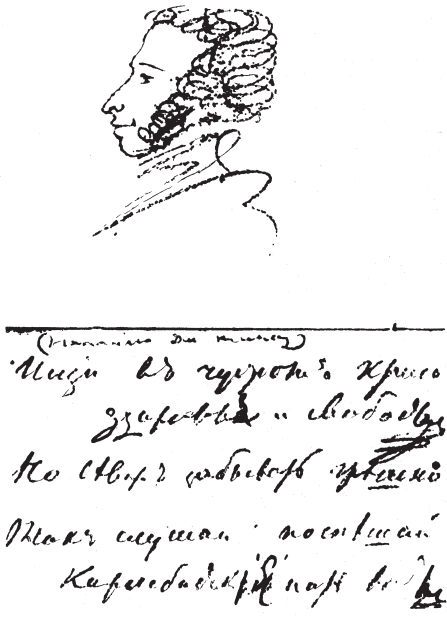 Ищи въ чужомъ краю
здоровья и свободы
Но Сѣверъ забывать грѣшно
Такъ слушай: поспѣшай
Карлсбадскія пить воды